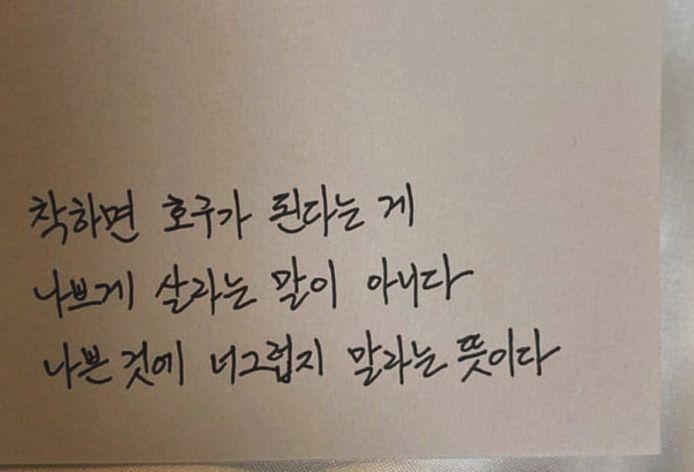 착하면 호구가 된다는 게
나쁘게 살라는 말이 아니다
나쁜 것에 너그럽지 말라는 뜻이다